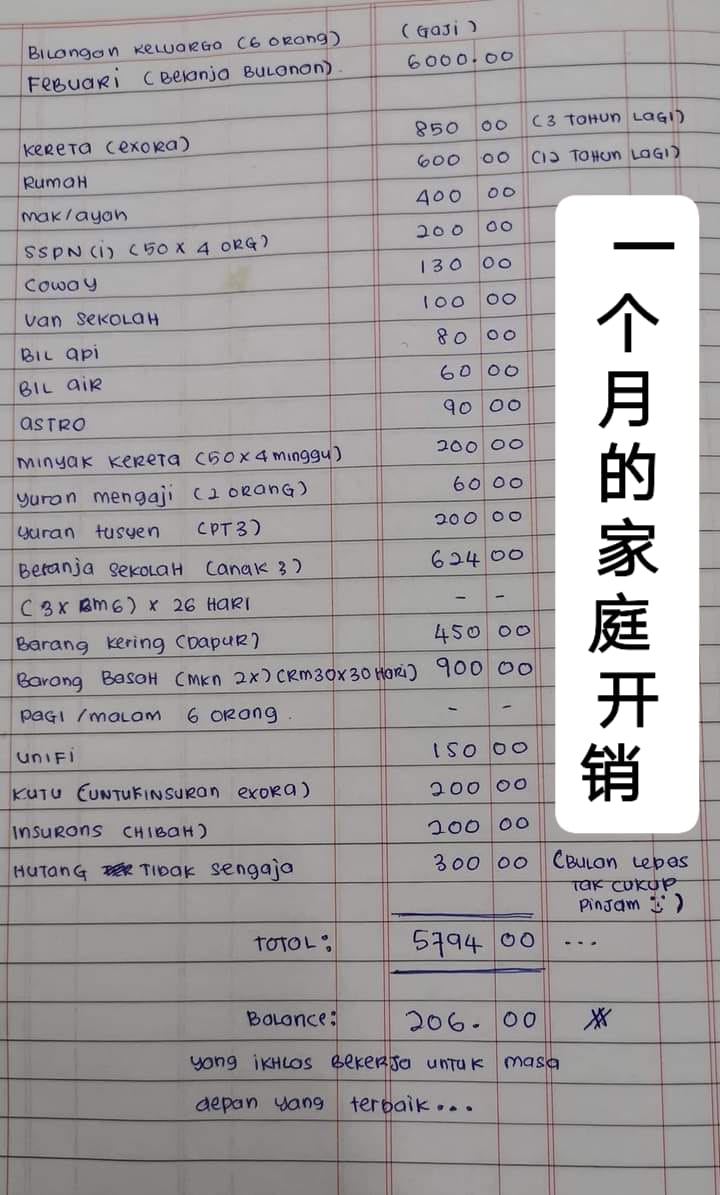 BILANGAN KELUARGA (6 ORANG) (GAJI)
FEBUARI (BELANJA BULANAN). 6000.00
KERETA (EXORA) 850 00 (3 TAHUN LAGI)
RUMAH 600 00 (12 TAHUN LAGI)
MAK/AYAH 400 00
SSPN (i) (50 X 4 ORG) 200 00
COWAY 130 00
VAN SEKOLAH 100 00
BIL API 80 00
BIL AIR 60 00
ASTRO 90 00
MINYAK KERETA (50 X 4 MINGGU) 200 00
YURAN MENGAJI (2 ORANG) 60 00
YURAN TUSYEN (PT3) 200 00
BELANJA SEKOLAH (ANAK 3) 624 00
(3 X RM6) X 26 HARI - -
BARANG KERING (DAPUR) 450 00
BARANG BASAH (MKN 2X) (RM30X30 HARI) 900 00
PAGI /MALAM 6 ORANG. - -
UNIFI 150 00
KUTU (UNTUKINSURAN EXORA) 200 00
INSURANS (HIBAH) 200 00
HUTANG TIDAK SENGAJA 300 00 (BULAN LEPAS
TAK CUKUP
PINJAM :))
TOTAL: 5794 00 ...
BALANCE: 206. 00
YANG IKHLAS BEKERJA UNTUK MASA
DEPAN YANG TERBAIK...
一个月的家庭开销